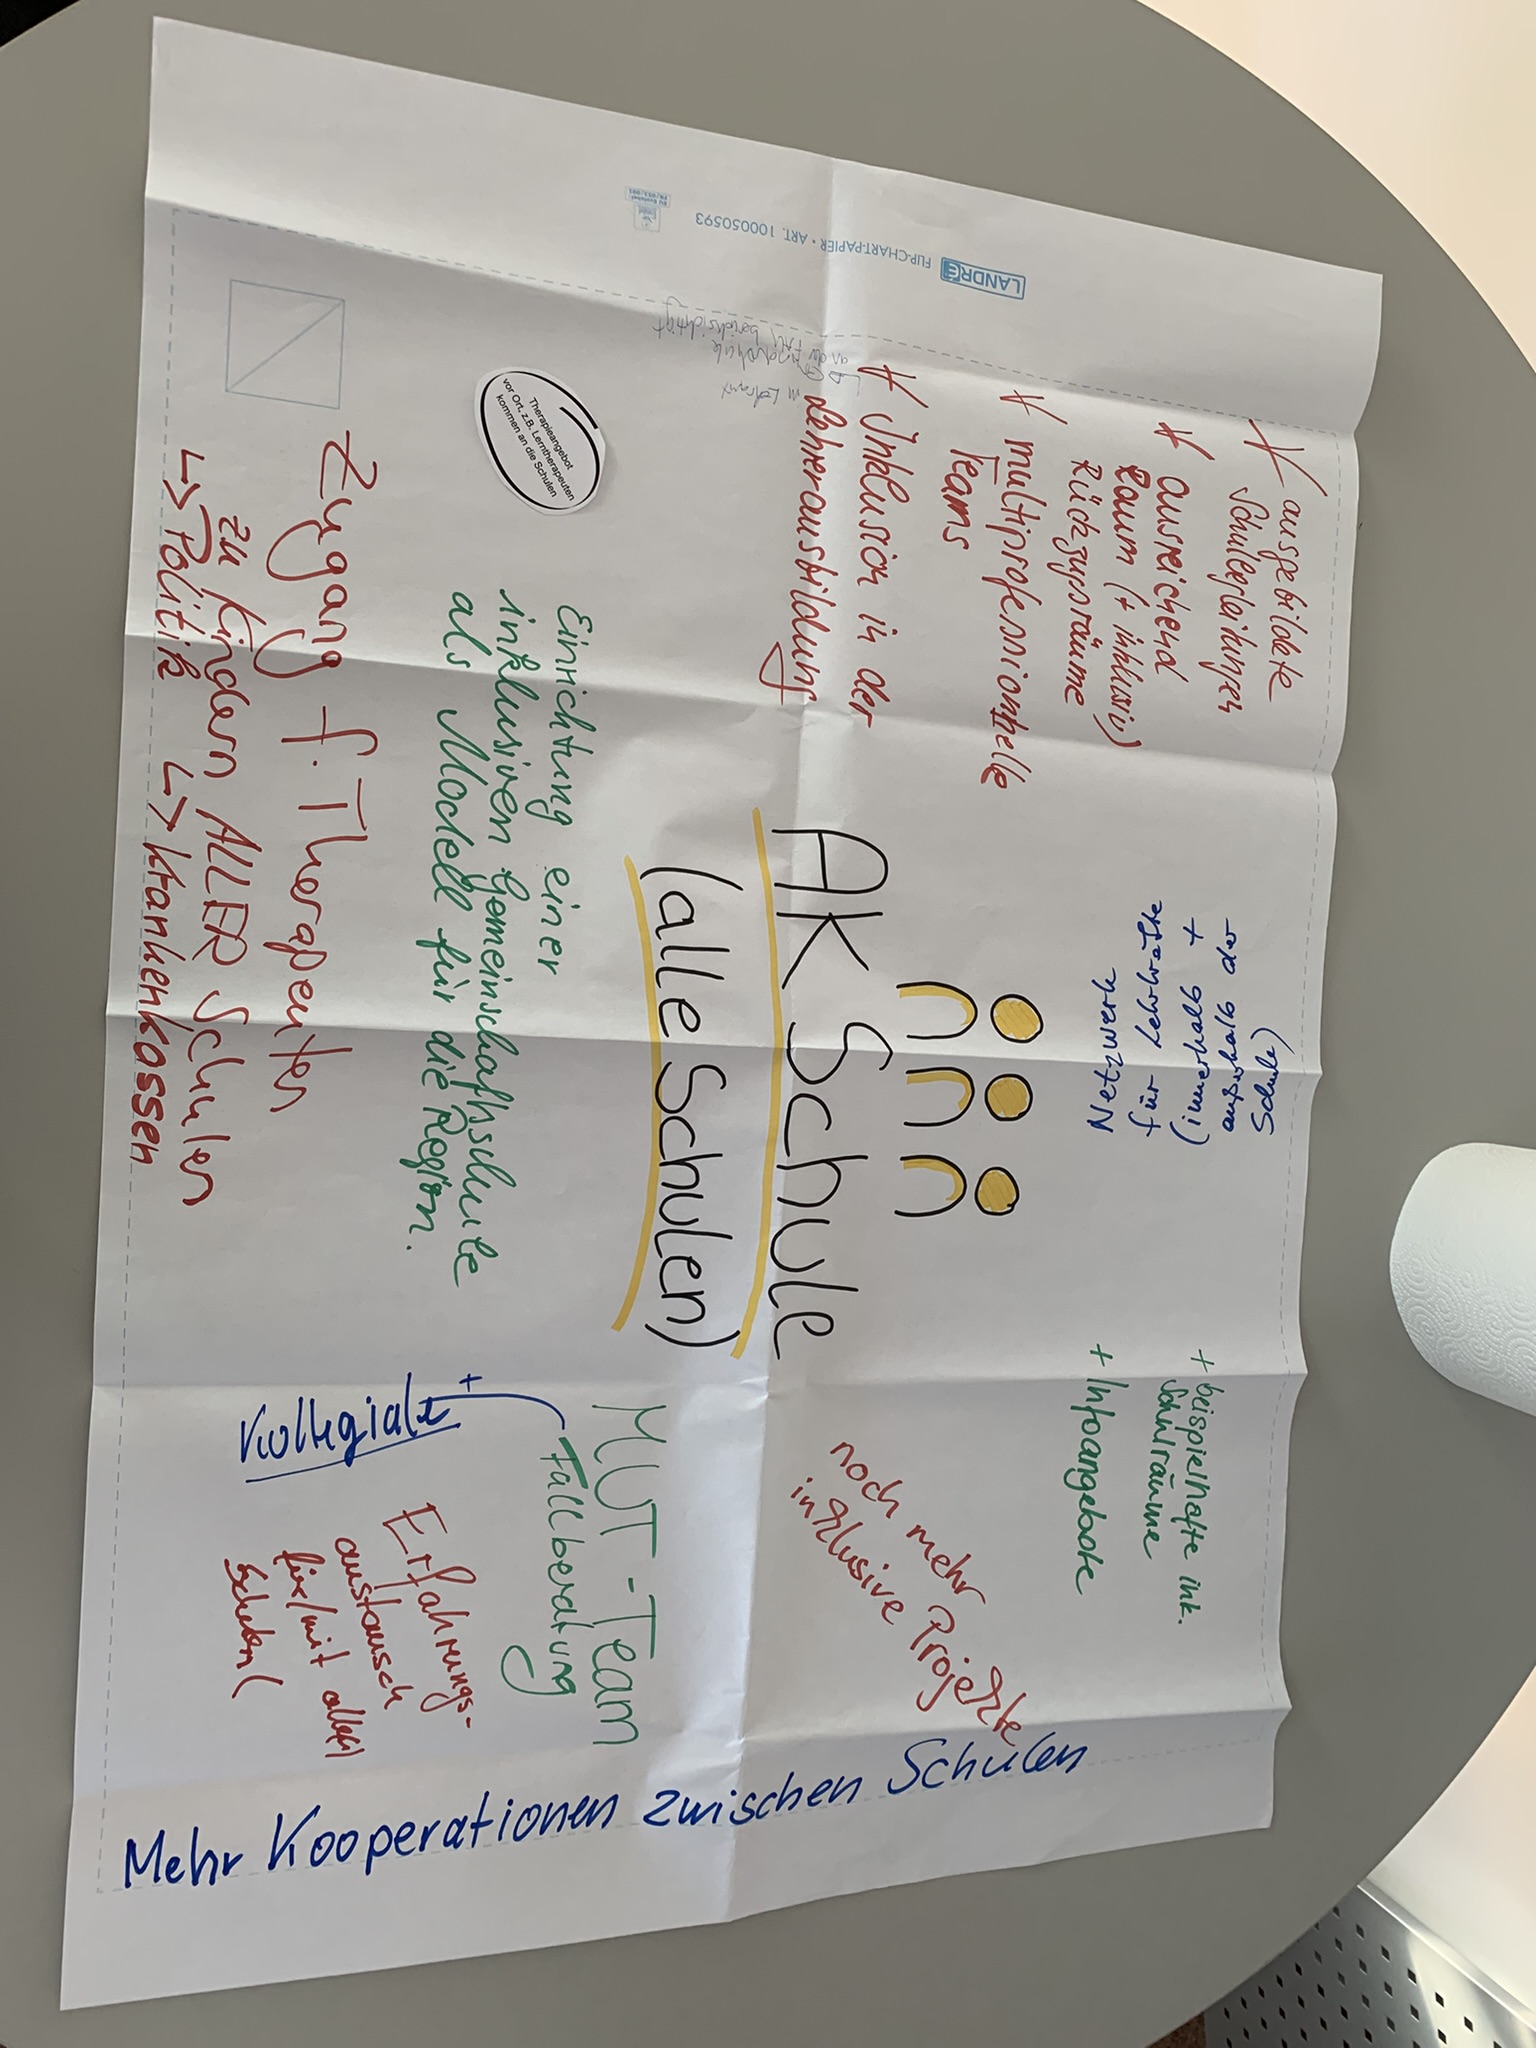 * ausgebildete
Schulbegleitungen
* ausreichend
Raum (+ inklusiv)
Rückzugsräume
* multiprofessionelle
Teams
* Inklusion in der
Lehrerausbildung
im Lehramt
Grundschule
an der
berücksichtigt
Netzwerk
für Lehrkräfte
(innerhalb +
außerhalb der
Schule)
+ beispielhafte ink.
Schulräume
+ Infoangebote
noch mehr
inklusive Projekte
AK Schule
(alle Schulen)
Therapieangebot
vor Ort, z.B. Lerntherapeuten
kommen an die Schulen
Einrichtung einer
inklusiven Gemeinschaftsschule
als Modell für die Region.
MUT-Team
Fallberatung
+
Kollegiale
Erfahrungs-
austausch
für/mit allen
Schulen
Zugang f. Therapeuten
zu Kindern ALLER Schulen
↳ Politik ↳ Krankenkassen
Mehr Kooperationen zwischen Schulen
LANDRÉ FLIP-CHART-PAPIER • ART. 100050593